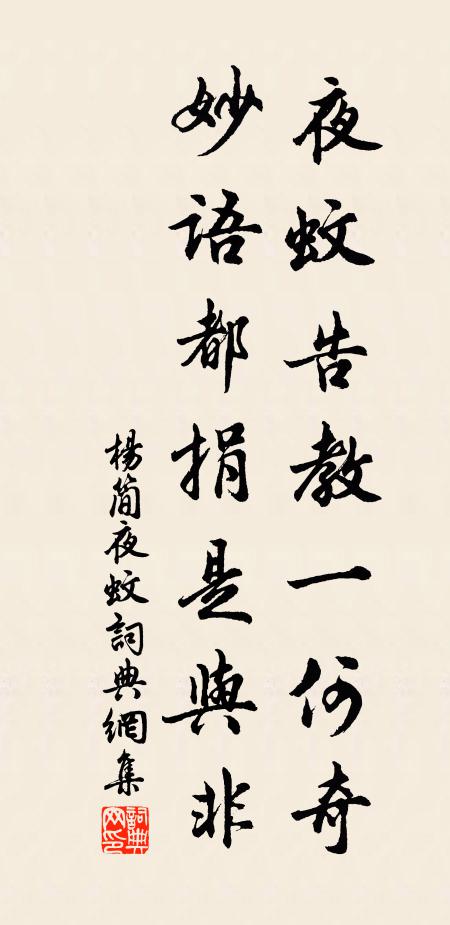 夜蚊告教一何奇
妙语都捐是與非
楊简夜蚊詞典網集
詞典
网印